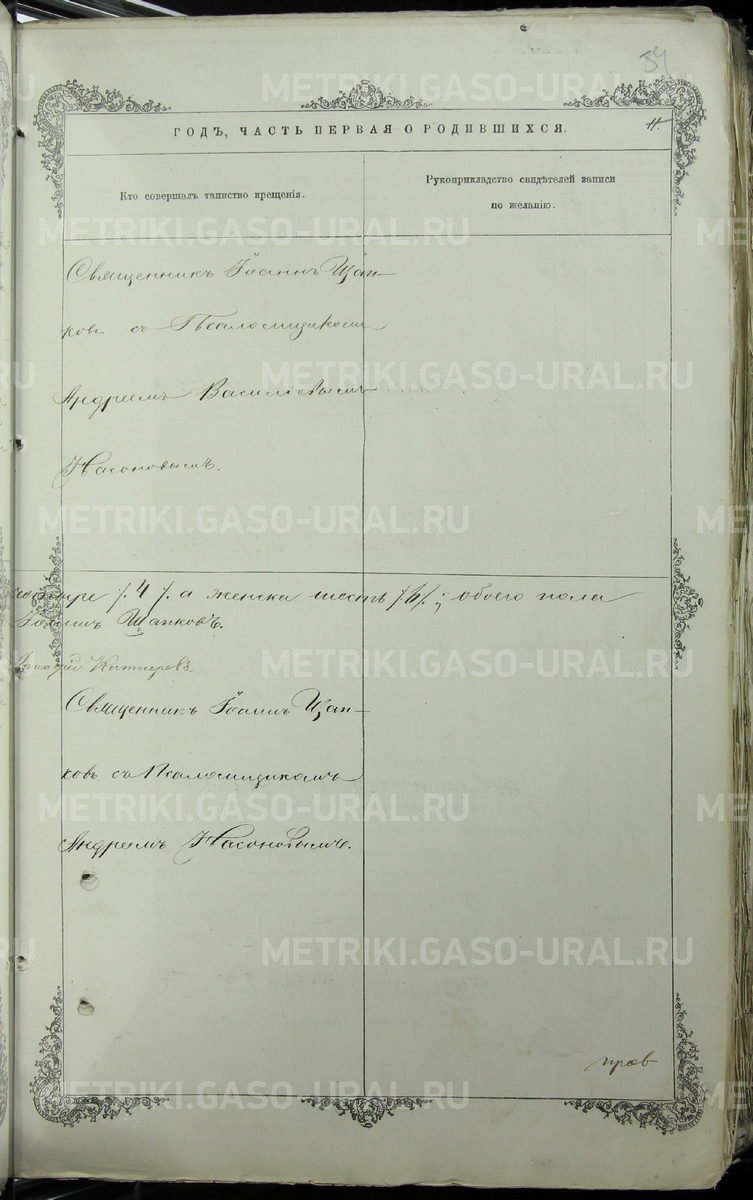 84
ГОДЪ, ЧАСТЬ ПЕРВАЯ О РОДИВШИХСЯ.
Кто совершалъ таинство крещенія.
Рукоприкладство свидѣтелей записи
по желанію.
Священникъ Іоаннъ Щап-
ковъ съ Псаломщикомъ
Андреемъ Василіевымъ
Насоновымъ.
четыре /.4/. а женска шесть /.6/.; обоего пола
Іоаннъ Щапковъ.
Священникъ Іоаннъ Щап-
ковъ съ Псаломщикомъ
Андреемъ Насоновымъ.
METRIKI.GASO-URAL.RU